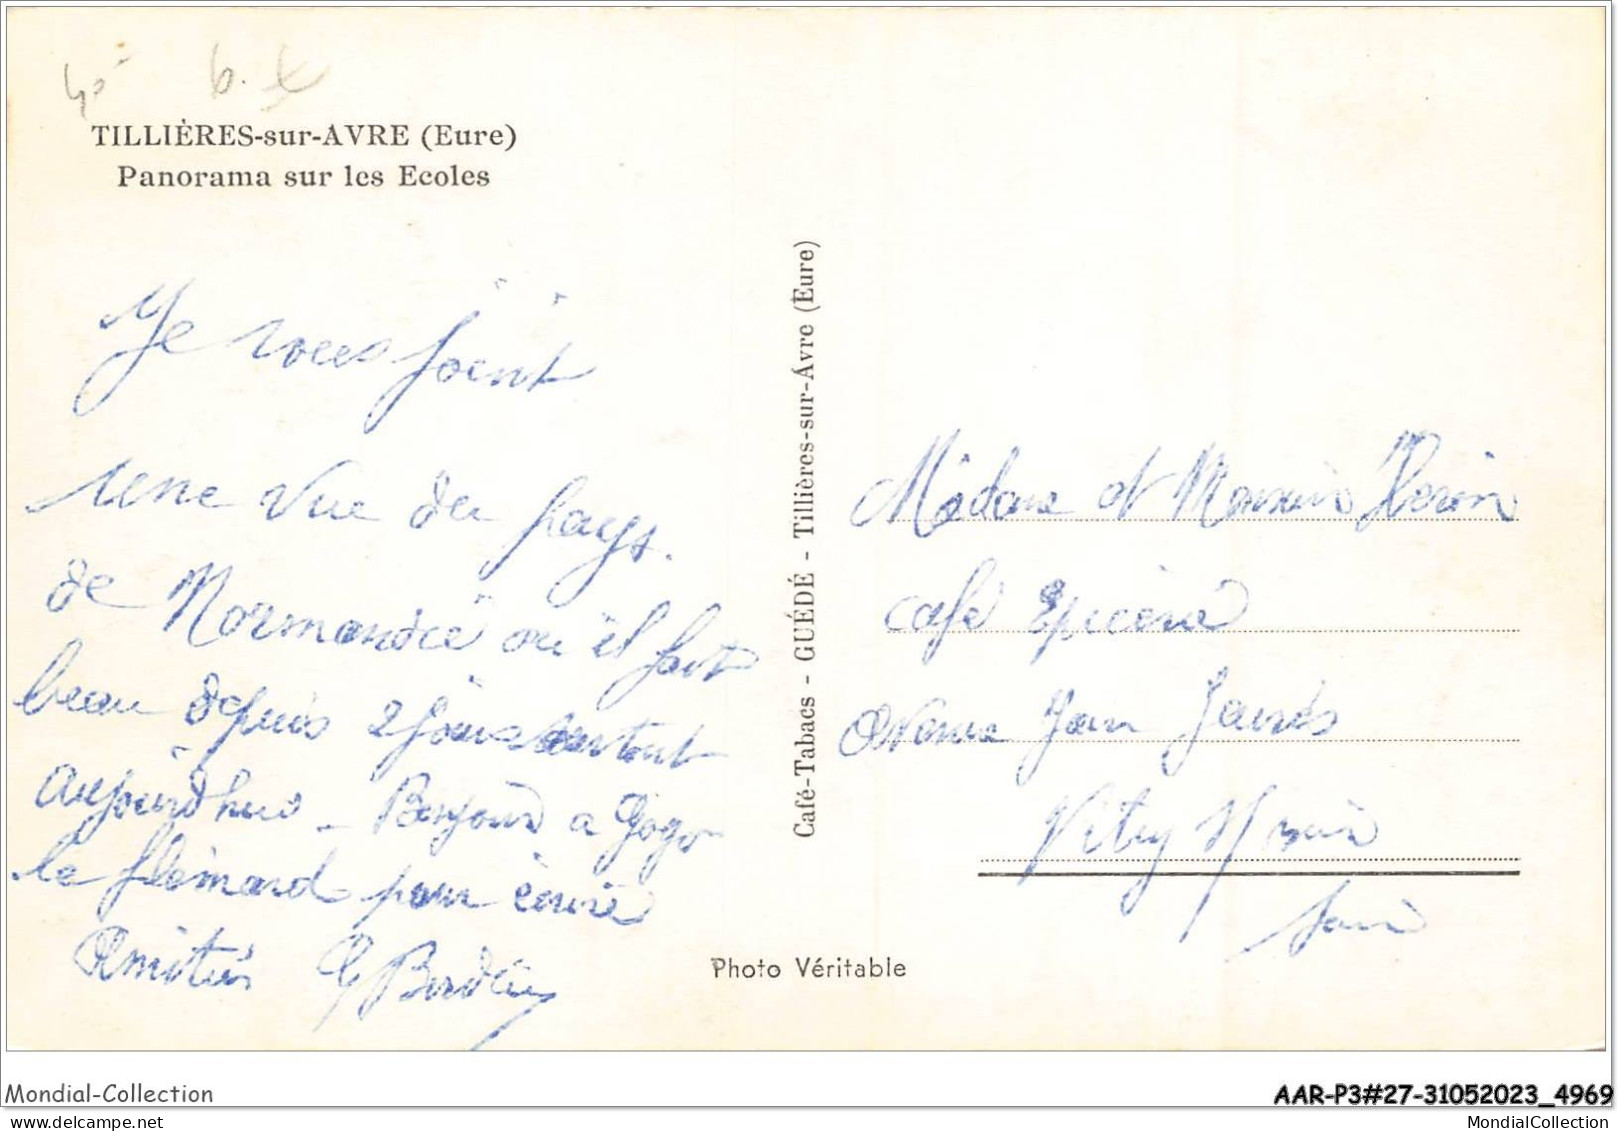 TILLIÈRES-sur-AVRE (Eure)
Panorama sur les Ecoles
Je vous joint
une vue du pays.
de Normandie ou il fait
beau depuis 2 jours surtout
aujourd'hui - Bonjour a Gogo
le flémard pour écrire
Amitiés
Café-Tabacs - GUÉDÉ - Tillières-sur-Avre (Eure)
Madame et Monsieur
Café Epicerie
Avenue Jean Jaurès
Vitry
Photo Véritable
Mondial-Collection
AAR-P3#27-31052023_4969
www.delcampe.net
MondialCollection